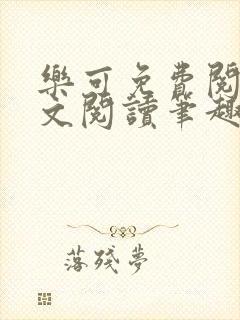 樂可免費閱
文閱讀筆趣
落殘夢